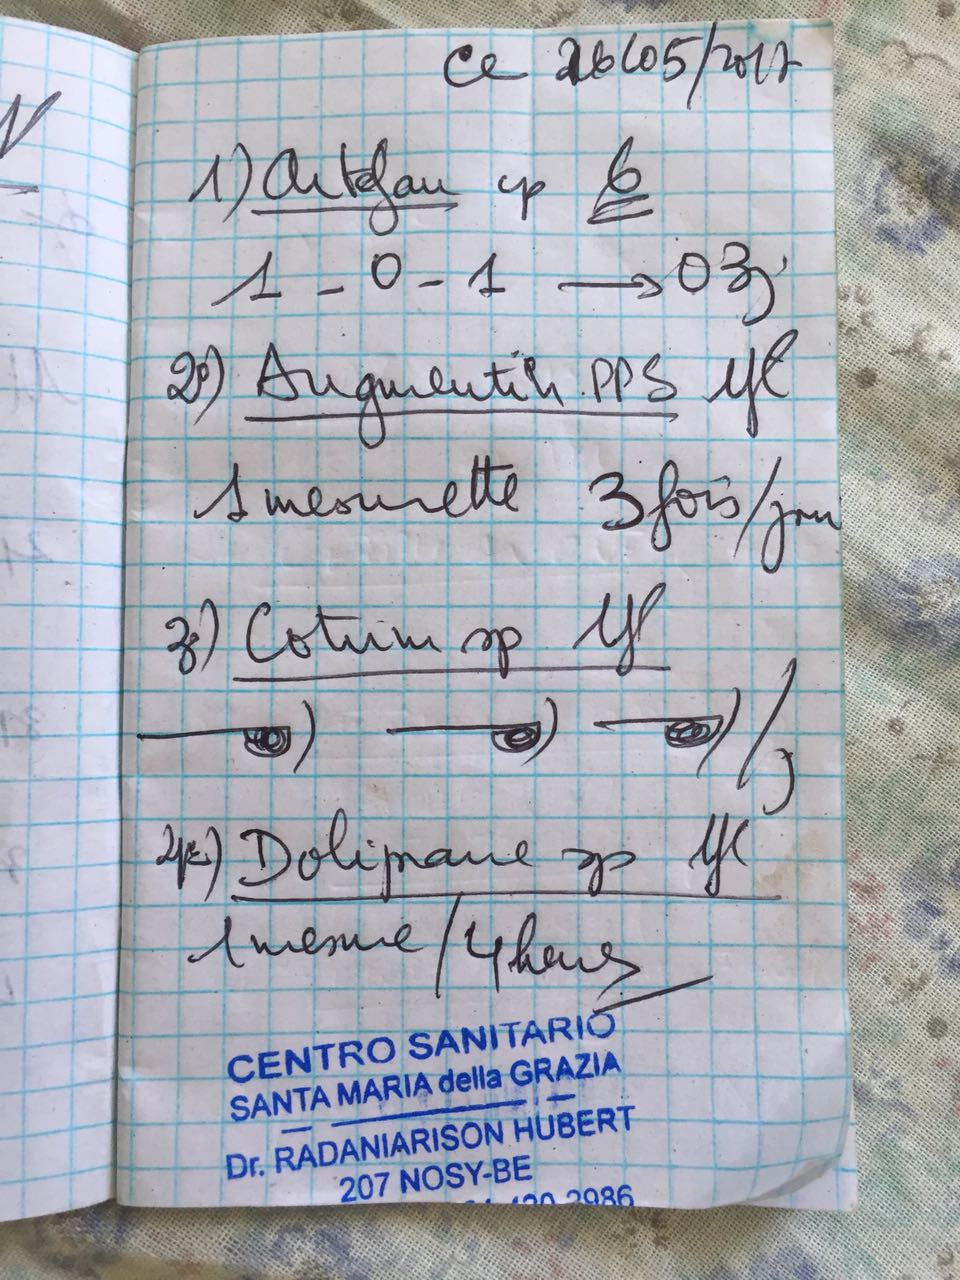 Ce 26/05/2017
1) Artefan cp 6
1 - 0 - 1 → 03j
2°) Augmentin PPS
1 mesurette 3 fois/jour
3°) Cotrim sp
/j
4°) Doliprane sp
1 mesure / 4 heures
CENTRO SANITARIO
SANTA MARIA della GRAZIA
Dr. RADANIARISON HUBERT
207 NOSY-BE